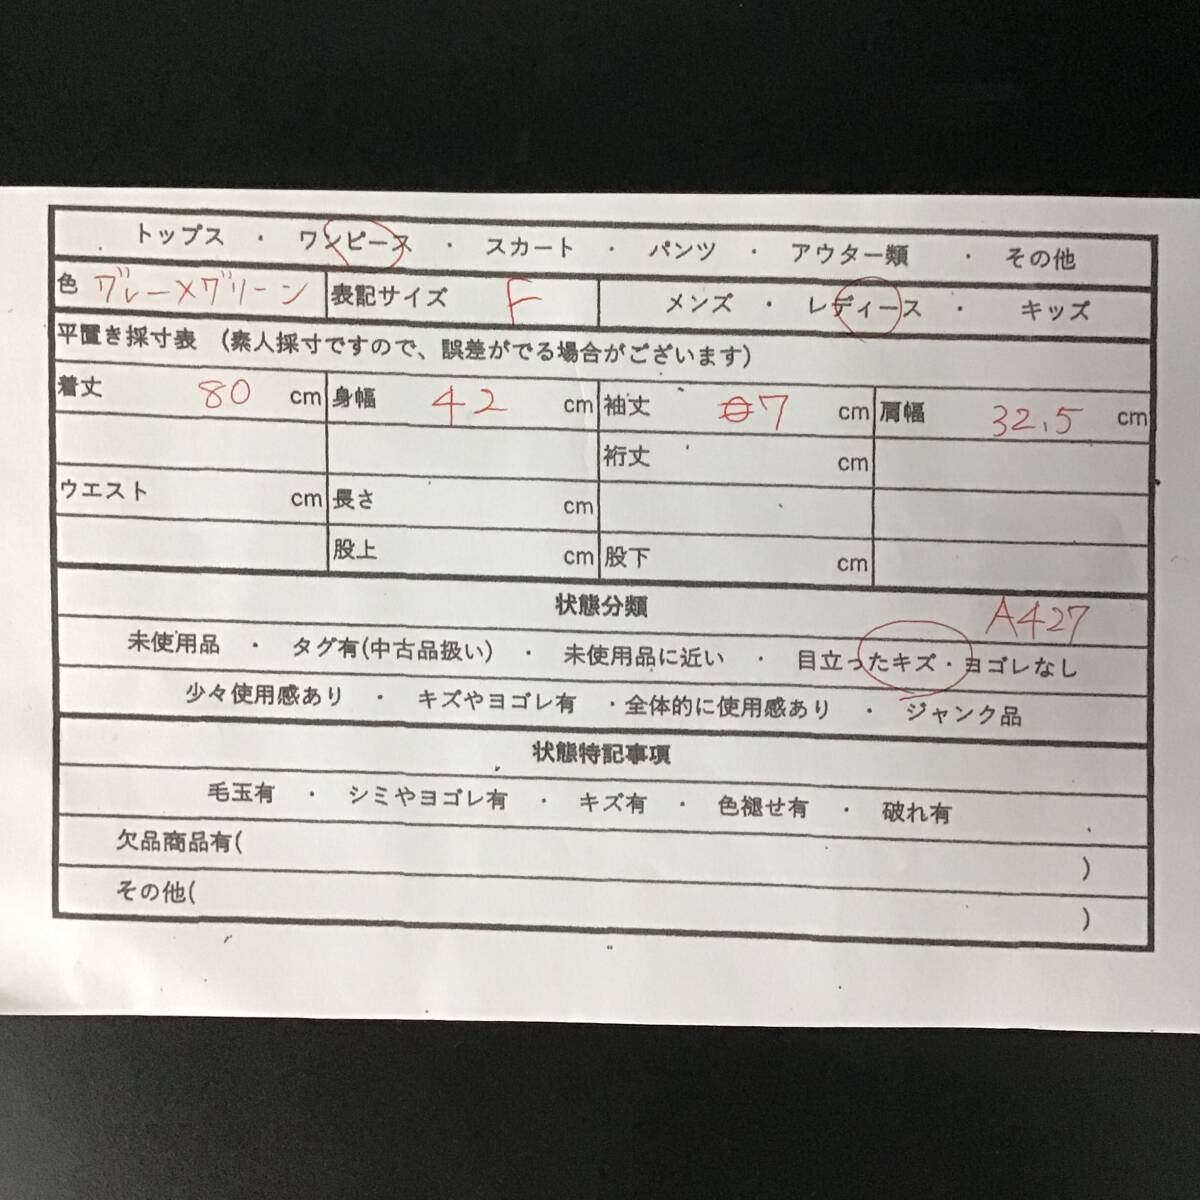 トップス ・ ワンピース ・ スカート ・ パンツ ・ アウター類 ・ その他
色 グレー×グリーン 表記サイズ F メンズ ・ レディース ・ キッズ
平置き採寸表 (素人採寸ですので、誤差がでる場合がございます)
着丈 80 cm 身幅 42 cm 袖丈 7 cm 肩幅 32.5 cm
裄丈 cm
ウエスト cm 長さ cm
股上 cm 股下 cm
状態分類 A427
未使用品 ・ タグ有(中古品扱い) ・ 未使用品に近い ・ 目立ったキズ・ヨゴレなし
少々使用感あり ・ キズやヨゴレ有 ・全体的に使用感あり ・ ジャンク品
状態特記事項
毛玉有 ・ シミやヨゴレ有 ・ キズ有 ・ 色褪せ有 ・ 破れ有
欠品商品有( )
その他( )